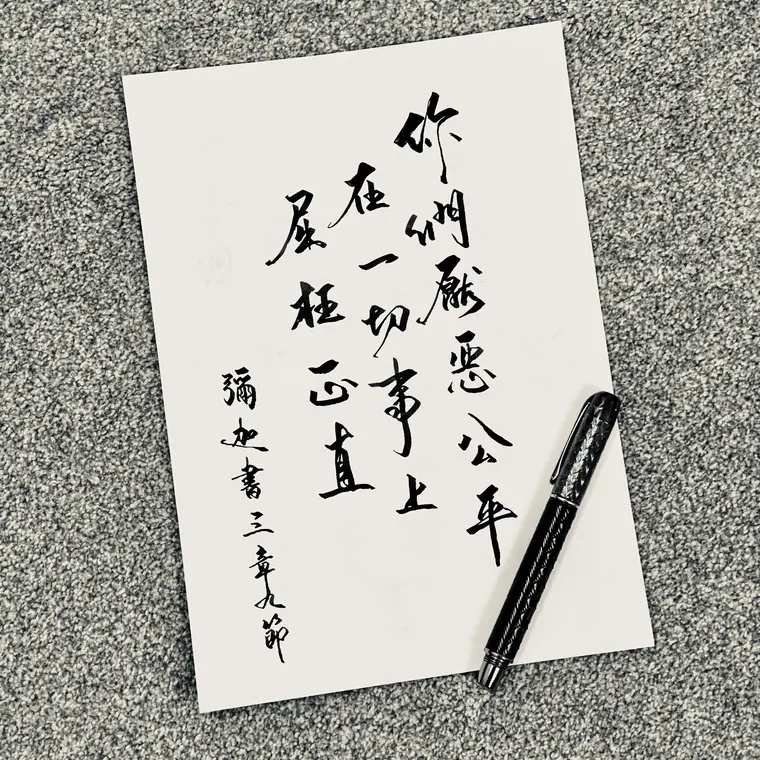 你們厭惡公平
在一切事上
屈枉正直
彌迦書三章九節